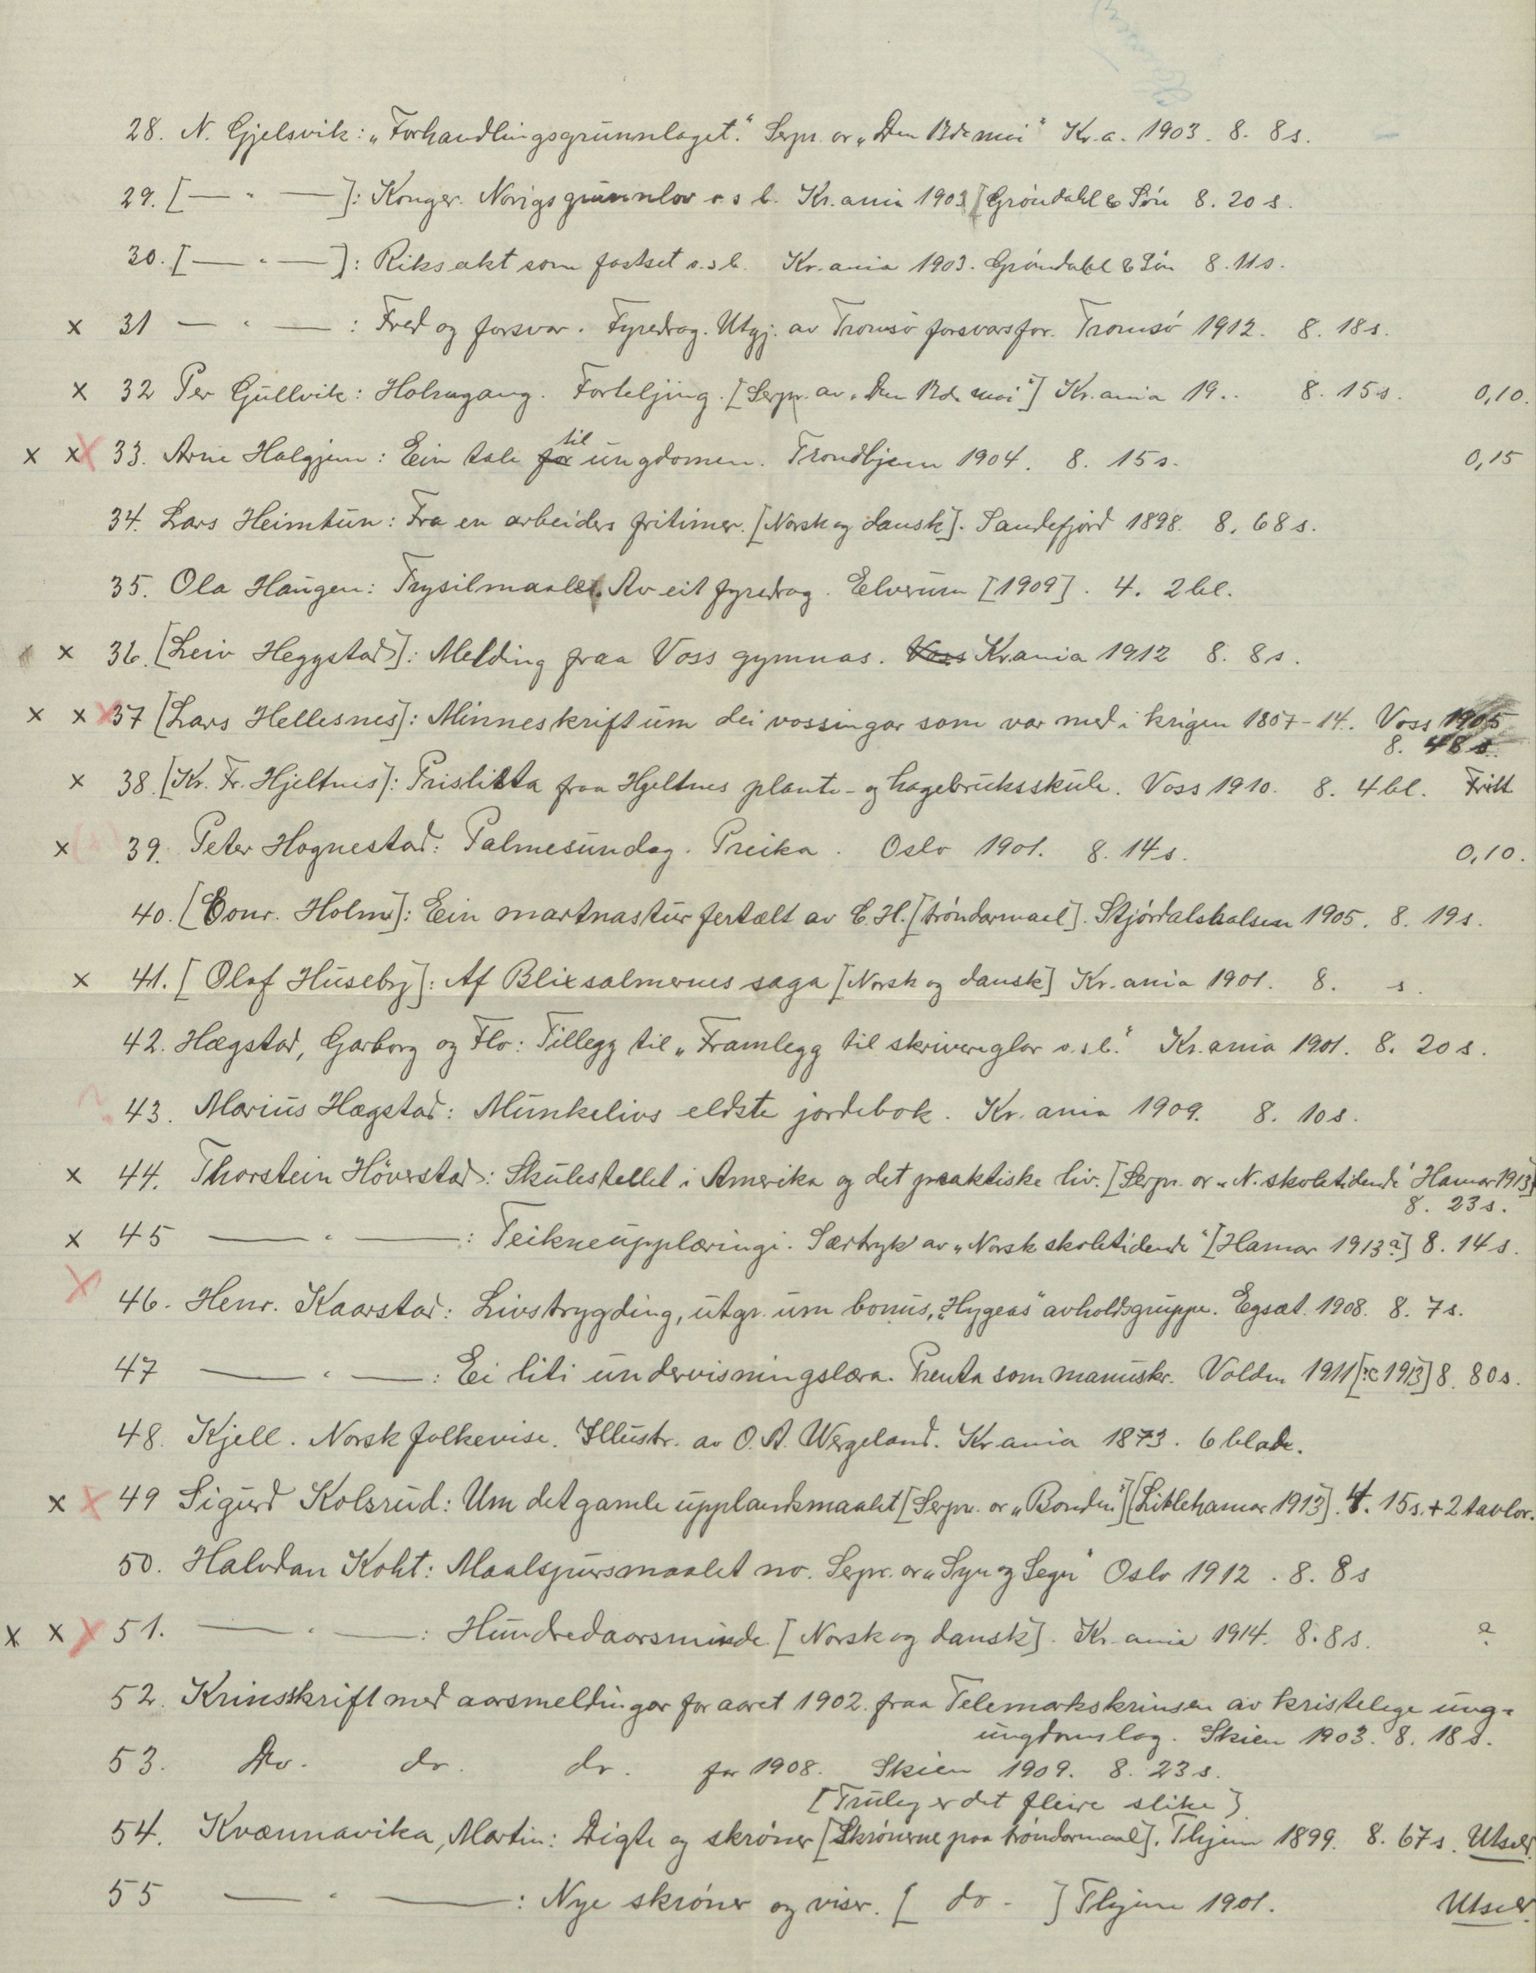 28. N. Gjelsvik: „Forhandlingsgrunnlaget“. Serpr. or „Den 17de mai“ Kr.a. 1903. 8. 8 s.
29. [— " —]: Konger. Norigs grunnlov o s b. Kr.ania 1903 [Grøndahl & Søn 8. 20 s.
30. [— " —]: Riksakt som fastset o.s.b. Kr.ania 1903. Grøndahl & Søn 8. 11 s.
x 31 — " — : Fred og forsvar. Fyredrag. Utgj. av Tromsø forsvarsfor. Tromsø 1912. 8. 18 s.
x 32 Per Gullvik: Holmgang. Forteljing. [Serpr. av „Den 17de mai“] Kr.ania 19.. 8. 15 s. 0,10.
x x x 33. Arne Halgjem: Ein tale for til ungdomen. Trondhjem 1904. 8. 15 s. 0,15
34. Lars Heimtun: Fra en arbeiders fritimer. [Norsk og dansk]. Sandefjord 1898. 8. 68 s.
35. Ola Haugen: Trysilmaalet. Av eit fyredrag. Elverum [1909]. 4. 2 bl.
x 36. [Leiv Heggstad]: Melding fraa Voss gymnas. Voss Kr.ania 1912 8. 8 s.
x x x 37 [Lars Hellesnes]: Minneskrift um dei vossingar som var med i krigen 1807-14. Voss 1905
8. 48 s.
x 38. [Kr. Fr. Hjeltnes]: Prislista fraa Hjeltnes plante- og hagebruksskule. Voss 1910. 8. 4 bl. Fritt
x 39. Peter Hognestad: Palmesundag. Preika. Oslo 1901. 8. 14 s. 0,10.
40. [Conr. Holm]: Ein martnastur fertælt av C. H. [trøndermael]. Stjørdalshalsen 1905. 8. 19 s.
x 41. [Olaf Huseby]: Af Blixsalmernes saga [Norsk og dansk] Kr.ania 1901. 8. s.
42. Hægstad, Garborg og Flo: Tillegg til „Framlegg til skrivereglar o.s.b.“ Kr.ania 1901. 8. 20 s.
43. Marius Hægstad: Munkelivs eldste jordebok. Kr.ania 1909. 8. 10 s.
x 44. Thorstein Høverstad: Skulestellet i Amerika og det praktiske liv. [Serpr. or „N. skoletidende“ Hamar 1913]
8. 23 s.
x 45 — " — : Teikneupplæringi. Særtryk av „Norsk skoletidende“ [Hamar 1913?] 8. 14 s.
x 46. Henr. Kaarstad: Livstrygding, utgr. um bonus, „Hygeas“ avholdsgruppe. Egsæt. 1908. 8. 7 s.
47 — " — : Ei liti undervisningslæra. Prenta som manuskr. Volden 1911 [: 1913] 8. 80 s.
48. Kjell. Norsk folkevise. Illustr. av O. A. Wergeland. Kr.ania 1873. 6 blade.
x x 49 Sigurd Kolsrud: Um det gamle upplandsmaalet [Serpr. or „Bonden“] [Litlehamar 1913]. 4. 15 s. + 2 tavlor.
50. Halvdan Koht: Maalspursmaalet no. Serpr. or „Syn og Segn“ Oslo 1912. 8. 8 s
x x x 51. — " — : Hundredaarsminde. [Norsk og dansk]. Kr.ania 1914. 8. 8 s. ?
52. Krinsskrift med aarsmeldingar for aaret 1902. fraa Telemarkskrinsen av kristelege ung-
ungdomslag. Skien 1903. 8. 18 s.
53. Do. do. do. for 1908. Skien 1909. 8. 23 s.
[Truleg er det fleire slike]
54. Kvænnavika, Martin: Digte og skrøner [Skrønerne paa trøndermaal]. Thjem 1899. 8. 67 s. Utseld.
55 — " — : Nye skrøner og viser. [do.] Thjem 1901. Utseld.